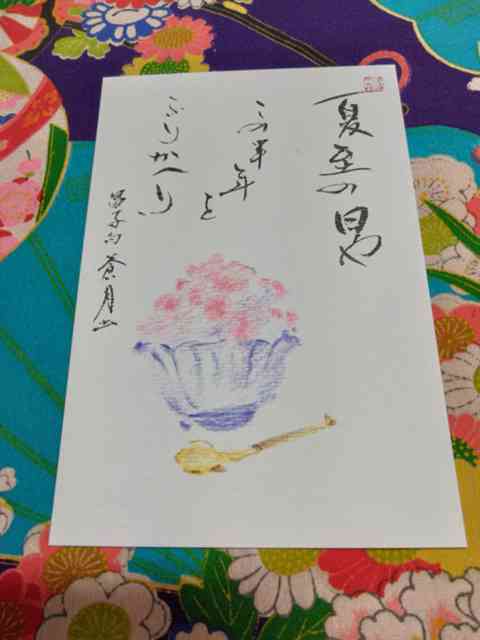 夏至の日や
この半年を
ふりかへり
子句 蒼月書